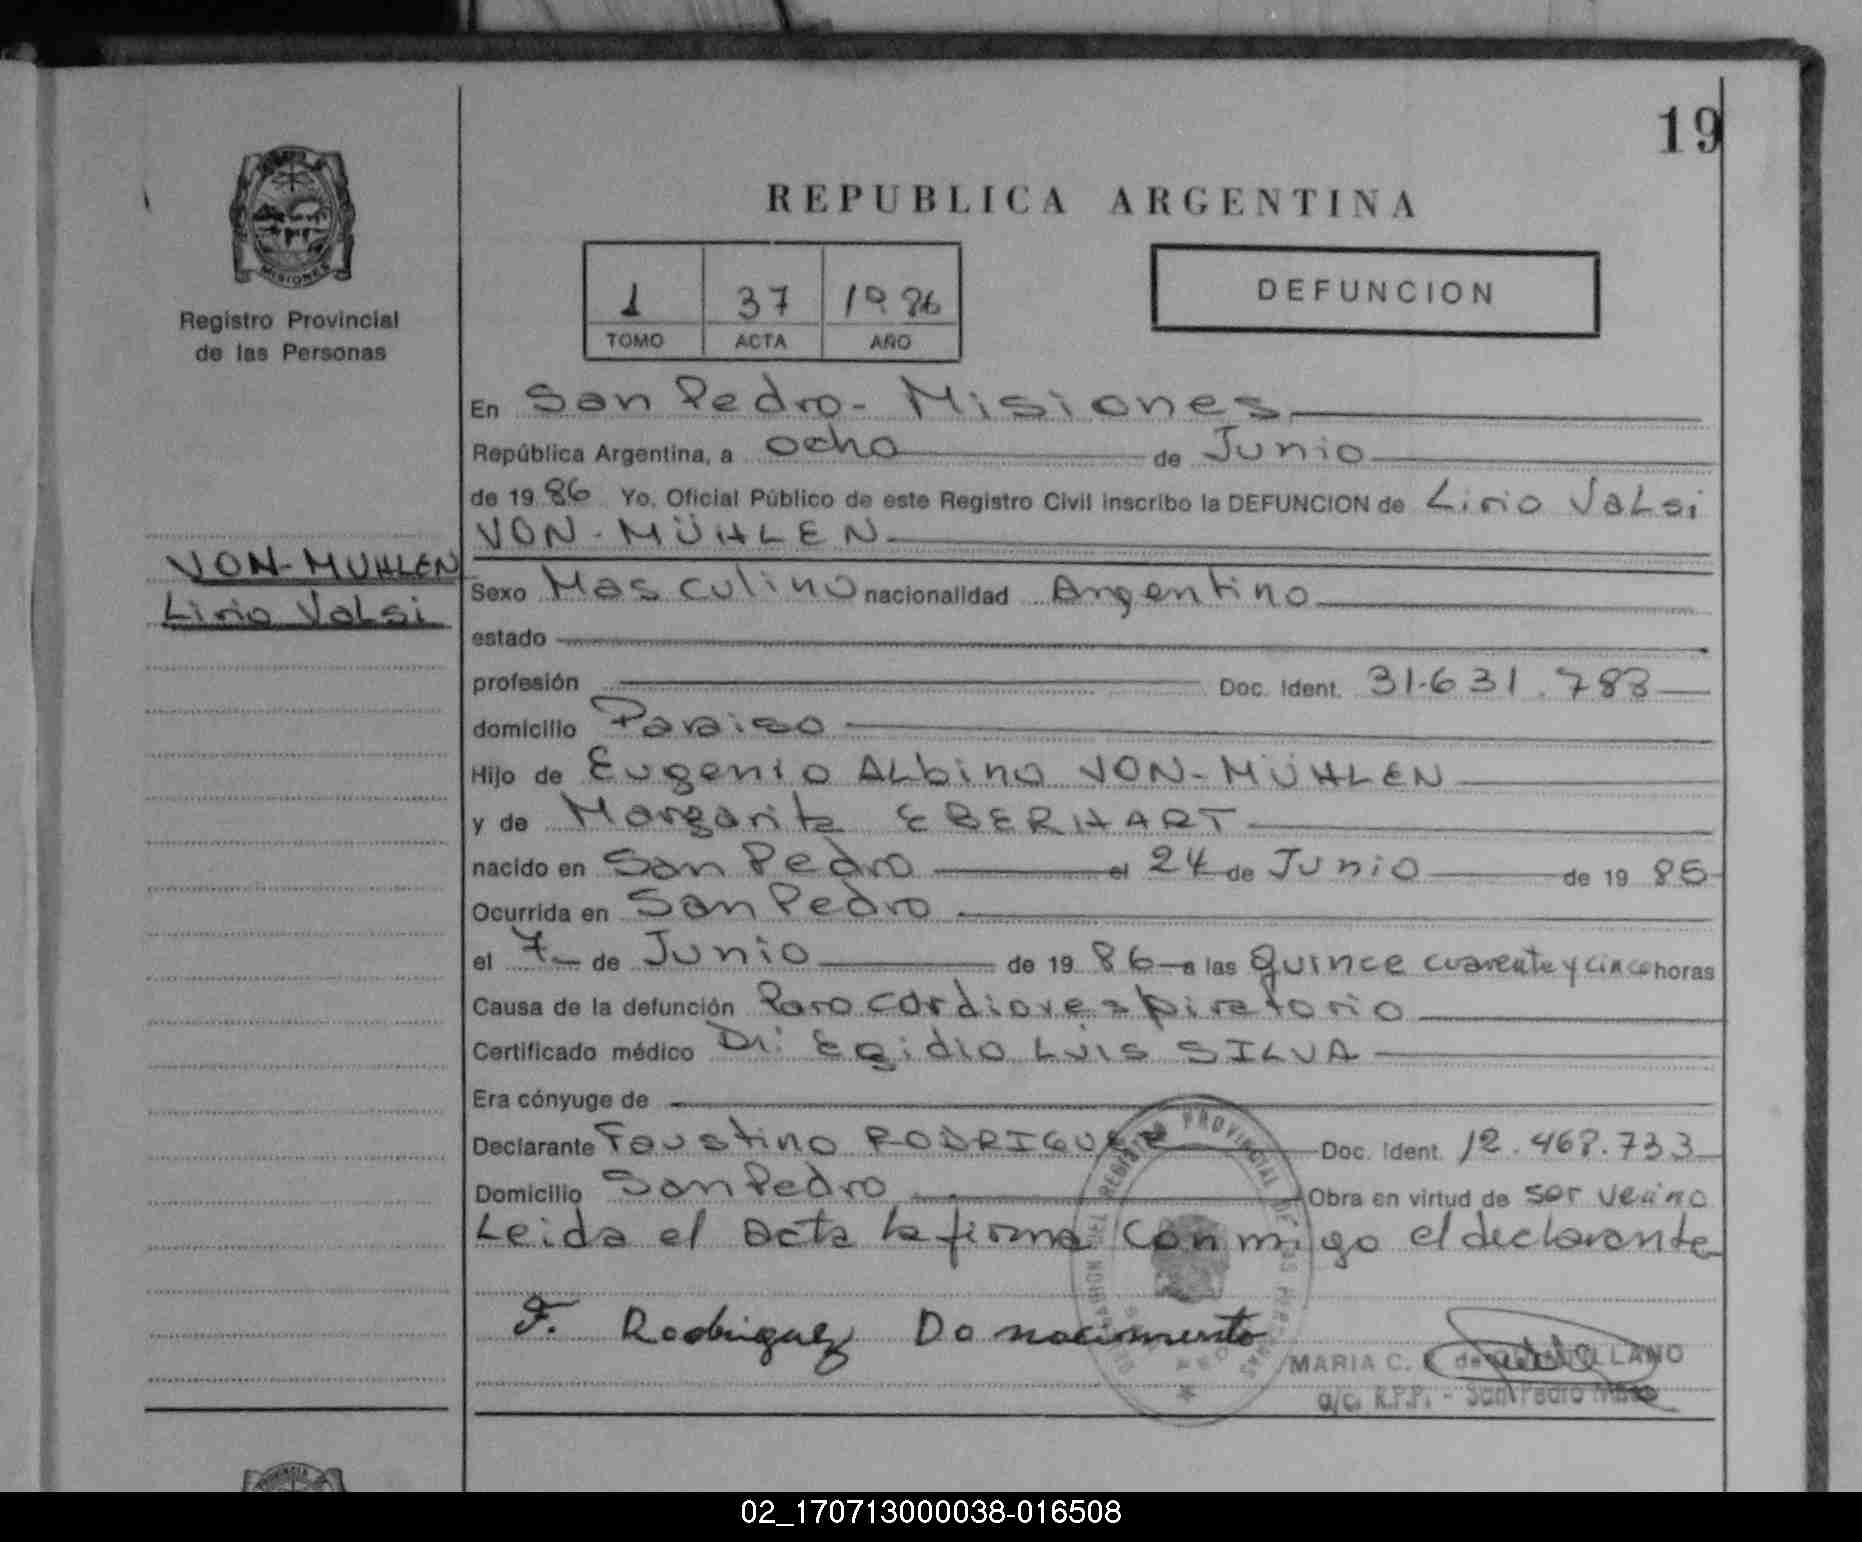 19
REPUBLICA ARGENTINA
MISIONES
Registro Provincial
de las Personas
1 37 1986
TOMO ACTA AÑO
DEFUNCION
En San Pedro - Misiones
República Argentina, a ocho de Junio
de 1986 Yo, Oficial Público de este Registro Civil inscribo la DEFUNCION de Lirio Valsi
VON-MÜHLEN
VON-MUHLEN
Lirio Valsi
Sexo Masculino nacionalidad Argentino
estado
profesión Doc. Ident. 31.631.783
domicilio Paraiso
Hijo de Eugenio Albino VON-MÜHLEN
y de Margarita EBERHART
nacido en San Pedro el 24 de Junio de 1985
Ocurrida en San Pedro
el 7 de Junio de 1986 a las quince cuarenta y cinco horas
Causa de la defunción Paro cardiorespiratorio
Certificado médico Dr: Egidio Luis SILVA
Era cónyuge de
Declarante Faustino RODRIGUEZ Doc. Ident. 12.468.733
Domicilio San Pedro Obra en virtud de ser vecino
Leida el acta la firma conmigo el declarante
F. Rodriguez Do nacimento
MARIA C.
a/c. R.P.P. - San Pedro Mnes
02_170713000038-016508